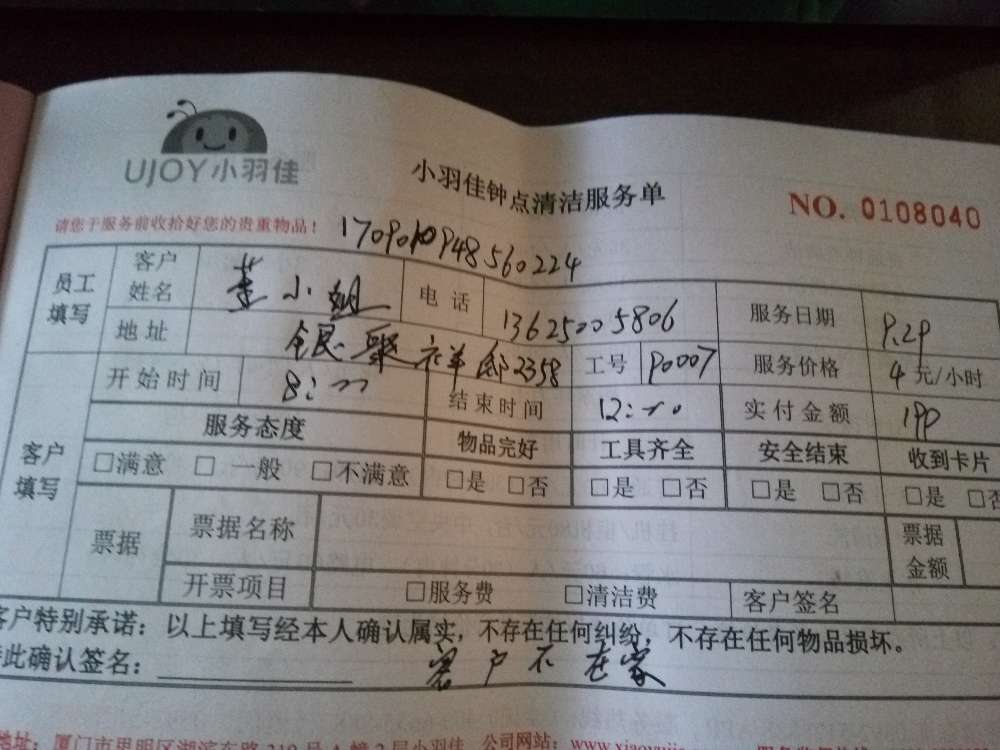 UJOY小羽佳
小羽佳钟点清洁服务单
NO. 0108040
请您于服务前收拾好您的贵重物品！
员工填写 客户姓名 小姐 电话 13625005806 服务日期 9.29
地址 银聚祥邸2358 工号 P0007 服务价格 4 元/小时
客户填写 开始时间 8: 结束时间 12: 实付金额 199
服务态度 物品完好 工具齐全 安全结束 收到卡片
□满意 □一般 □不满意 □是 □否 □是 □否 □是 □否 □是 □否
票据 票据名称 票据金额
开票项目 □服务费 □清洁费 客户签名
客户特别承诺：以上填写经本人确认属实，不存在任何纠纷，不存在任何物品损坏。
此确认签名： 客户不在家
地址：厦门市思明区湖滨东路319号A幢2层小羽佳 公司网站：www.xiaoyujia